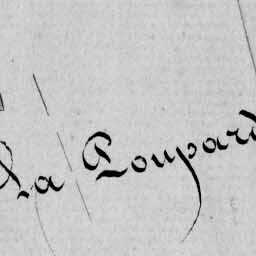 La Poupard